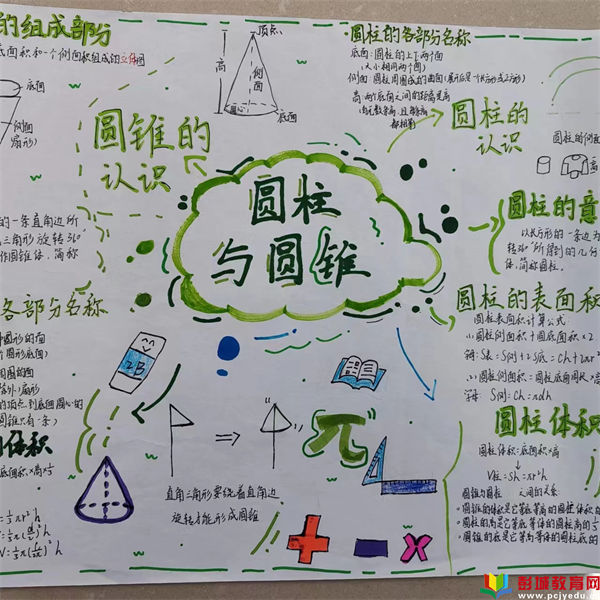 的组成部分
底面积和一个侧面积组成的立体图
底面
侧面
扇形)
顶点
高
侧面
圆心
底面
圆柱的各部分名称
底面:圆柱的上下两个面
(大小相同两个圆)
高:两个底面之间的距离是高
都相等
圆锥的
认识
圆柱的
认识
圆柱的侧面
高
圆柱
与圆锥
的一条直角边所
三角形旋转360°
圆锥体,简称
圆柱的意
以长方形的一条边为
转360°所得到的几分
体,简称圆柱。
各部分名称
圆形的面
个圆形底面)
周围的面
)扇形
的顶点到底面圆心的
圆锥只有一条)
圆柱的表面积
圆柱表面积计算公式
圆柱侧面积+圆柱底面积×2
S表=S侧+2S底=Ch+2πr²
圆柱侧面积=圆柱底面周长×高
S侧=Ch=πdh
2B
π
直角三角形要绕着直角边
旋转才能形成圆锥
体积
底面积×高×⅓
=⅓πr²h
=⅓π(d/2)²h
V=⅓π(
圆柱体积
圆柱体积=底面积×高
V柱=Sh=πr²h
圆锥与圆柱之间的关系
圆锥的体积是它等底等高的圆柱体积的
圆柱的高是它等底等体的圆柱高的⅓
圆锥的底是它等高等体的圆柱底的
彭城教育网
www.pcjyedu.com